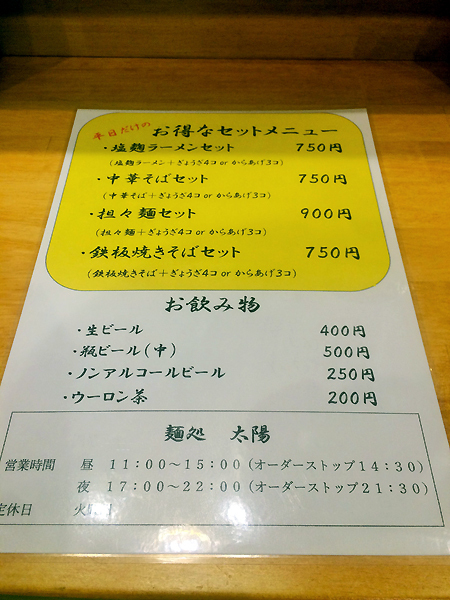 平日だけの お得なセットメニュー
・塩麹ラーメンセット 750円
(塩麹ラーメン+ぎょうざ4コ or からあげ3コ)
・中華そばセット 750円
(中華そば+ぎょうざ4コ or からあげ3コ)
・担々麺セット 900円
(担々麺+ぎょうざ4コ or からあげ3コ)
・鉄板焼きそばセット 750円
(鉄板焼きそば+ぎょうざ4コ or からあげ3コ)
お飲み物
・生ビール 400円
・瓶ビール(中) 500円
・ノンアルコールビール 250円
・ウーロン茶 200円
麺処 太陽
営業時間 昼 11:00～15:00(オーダーストップ14:30)
夜 17:00～22:00(オーダーストップ21:30)
定休日 火曜日